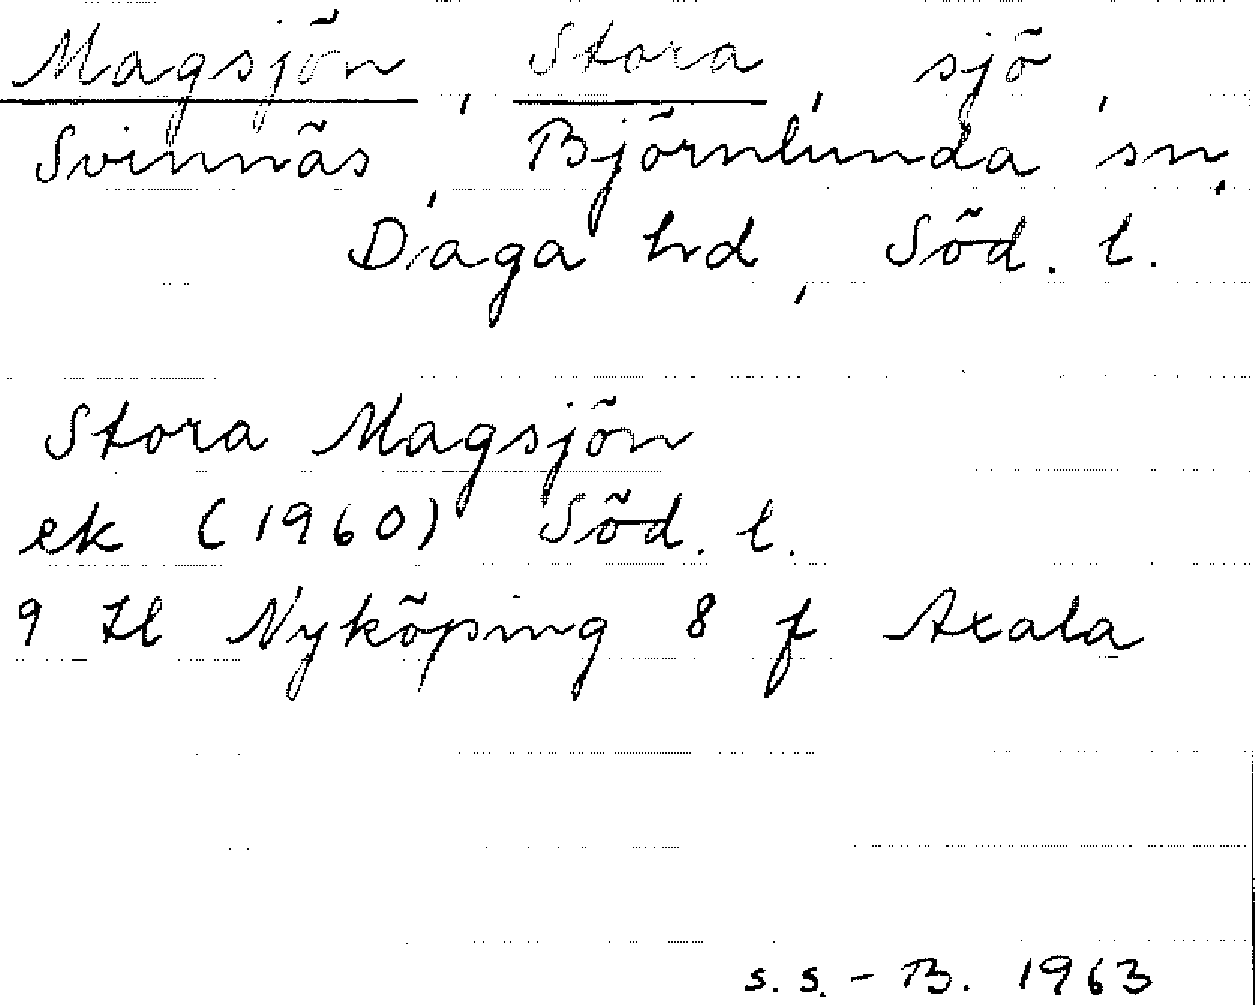 Magsjön, Stora, sjö,
Svinnäs, Björnlunda sn,
Daga hrd, Söd. l.
Stora Magsjön
ek (1960) Söd. l.
9 H Nyköping 8 f Axala
s. s. - B. 1963